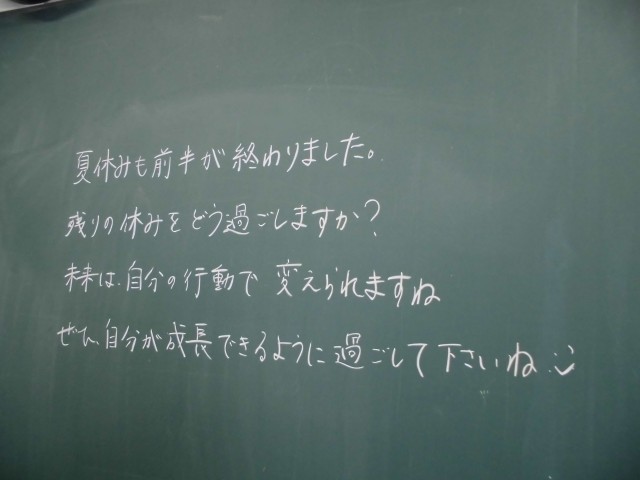 夏休みも前半が終わりました。
残りの休みをどう過ごしますか?
未来は、自分の行動で変えられますね
ぜひ、自分が成長できるように過ごして下さいね